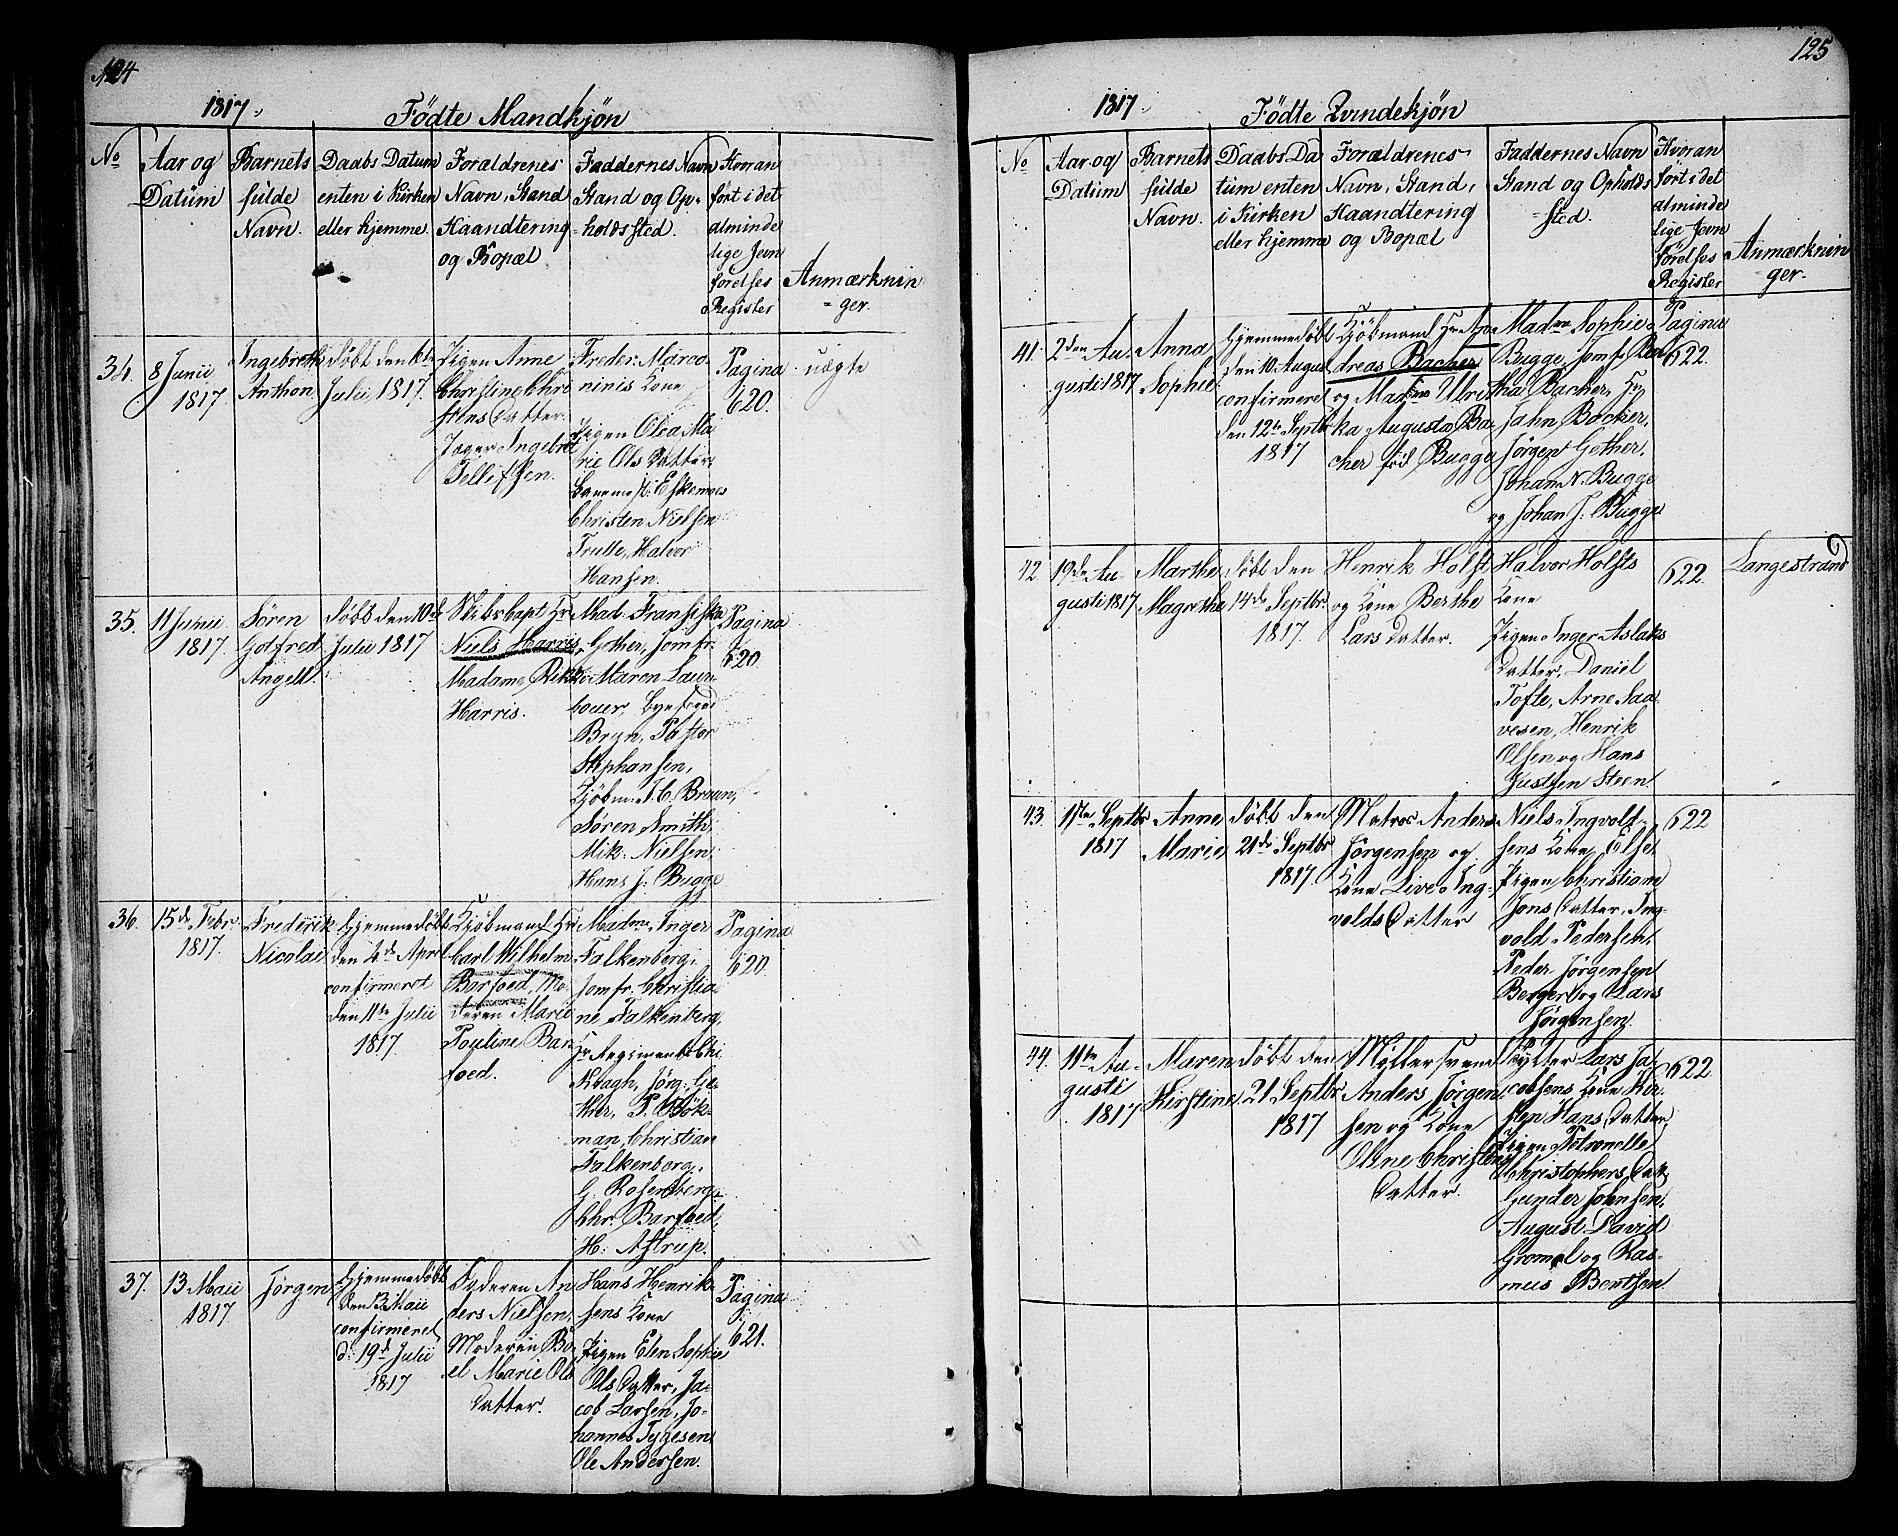 124
1817.
Födte Mandkjön
No
Aar og
Datum
Barnets
fulde
Navn.
Daabs Datum
enten i Kirken
eller hjemme.
Foraldrenes
Navn, Stand
Haandtering
og Bopæl
Faddernes Navn
Stand og Op-
holdssted.
Hvor an
fört i det
alminde
lige Jevn
förelses
Register
Anmærknin
ger.
34.
8 Junii
1817
Ingebreth
Anthon
döbt den
Julii 1817.
Pigen Anne
Christine Chri
stens Datter.
Ingebret
Tellifsen.
Freder: Marco
ninis Kone
Pigen Olea Ma
rie Ols Datter
Eskennes
Christen Nielsen
Trulle, Halvor
Hansen.
Pagina
620.
uægte
35.
11 Junii
1817.
Sören
Gotfred
Angell.
döbt den 10de
Julii 1817
Skibscapt Hr
Niels Harris,
Madame Rikke
Harris.
Mad. Fransiska
Gether, Jomfr.
Maren Laur
Bryn, Pastor
Stephansen,
Kjöbm: H. C. Bruun,
Sören Smith,
Mik: Nielsen,
Hans J: Bugge
Pagina
620.
36.
15de Febr.
1817.
Frederik
Nicolai
Hjemmedöbt
den 4de April
confirmeret
den 11te Julii
1817.
Kjöbmand Hr
Carl Wilhelm
Barfoed, Mo-
deren Marie
Pouline Bar
foed.
Madme Inger
Falkenberg,
Jomfr. Christia
ne Falkenberg,
Hr Regimentschi
Kragh, Jörg: Ge-
ther, P. Bök-
man, Christian
Falkenberg,
G. Rosenberg,
Chr. Barfoed,
H: Astrup.
Pagina
620.
37.
13 Maii
1817
Jörgen
Hjemmedöbt
den 13 Maii
confirmeret
d: 19de Julii
1817
Faderen An
ders Nielsen,
Moderen Bo-
el Marie Ols
Datter.
Hans Henrik
sens Kone
Pigen Elen Sophie
Ols Datter, Ja-
cob Larsen, Jo-
hannes Tygesen
Ole Andersen.
Pagina
621.
125
1817.
Födte Qvindekjön
No
Aar og
Datum
Barnets
fulde
Navn.
Daabs Da
tum enten
i Kirken
eller hjemme
Forældrenes
Navn, Stand,
Haandtering
og Bopæl
Faddernes Navn
Stand og Opholds
sted.
Hvor an
fört i det
alminde
lige Jevn
förelses
Register
Anmærknin
ger.
41.
2den Au-
gusti 1817
Anna
Sophie
Hjemmedöbt
den 10 August
confirmeret
den 12te Septbr
1817
Kjöbmand Hr An-
dreas Bacher
og Madme Ulri-
ka Augusta Ba-
cher föd Bugge
Madme Sophie
Bugge, Jomfr Ren
tha Bacher, Hr
Jahn Bacher,
Jörgen Gether,
Johan N. Bugge
og Johan J. Bugge
Pagina
622.
42
19de Au-
gusti 1817
Marthe
Magrethe
döbt den
14de Septbr
1817.
Henrik Holst
og Kone Berthe
Lars Datter.
Halvor Holsts
Kone
Pigen Inger Aslaks
Datter, Daniel
Tofte, Arne Saa
vesen, Henrik
Olsen og Hans
Steen
622.
Langestrand
43.
1ste Septbr
1817
Anne
Marie
döbt den
21de Septbr
1817.
Matros Anders
Jörgensen og
Kone Live Ing-
volds Datter
Niels Ingvold-
sens Kone, Else,
Pigen Christiane
Jons Datter, Ing-
vold Pedersen,
Peder Jörgensen
Berger og Lars
Jörgensen.
622
44.
11te Au-
gusti
1817
Maren
Kirstine
döbt den
21 Septbr
1817
Möllersvend
Anders Jörgen
sen og Kone
Oline Christens
Datter.
Rytter Lars Ja-
cobsens Kone Kir-
sten Hans Datter,
Pigen Petronelle
Christophers Datt
Gunder Johnsen,
August David
Gromel og Ras-
mus Bentsen
622.